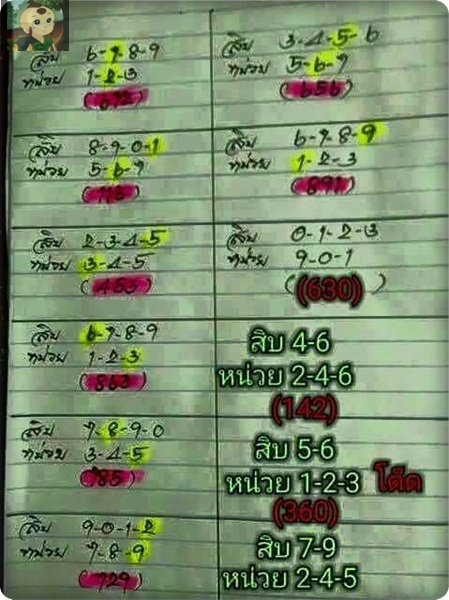 สิบ 6-7-8-9
หน่วย 1-2-3
(672)
สิบ 8-9-0-1
หน่วย 5-6-7
สิบ 2-3-4-5
หน่วย 3-4-5
(453)
สิบ 6-7-8-9
หน่วย 1-2-3
(863)
สิบ 7-8-9-0
หน่วย 3-4-5
(785)
สิบ 9-0-1-2
หน่วย 7-8-9
(729)
สิบ 3-4-5-6
หน่วย 5-6-7
(656)
สิบ 6-7-8-9
หน่วย 1-2-3
(891)
สิบ 0-1-2-3
หน่วย 9-0-1
(630)
สิบ 4-6
หน่วย 2-4-6
(142)
สิบ 5-6
หน่วย 1-2-3 โต๊ด
(360)
สิบ 7-9
หน่วย 2-4-5